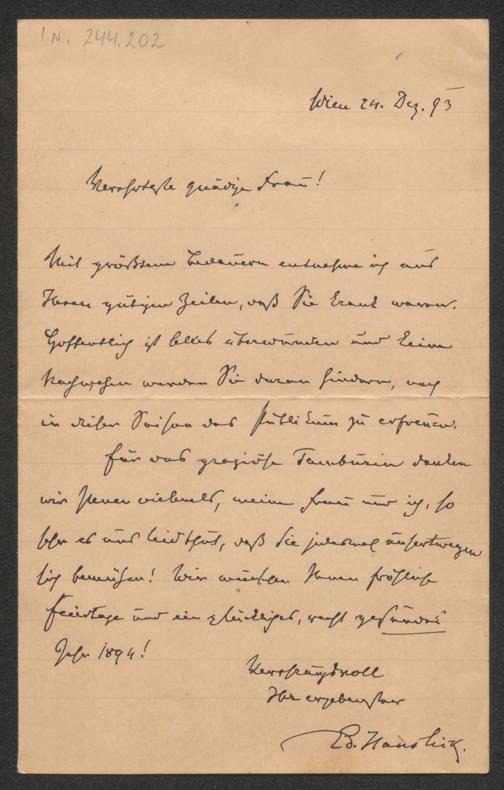 I.N. 244.202
Wien 24. Dez. 93
Verehrteste gnädige Frau!
Mit größtem Bedauern entnehme ich aus
Ihren gütigen Zeilen, daß Sie krank waren.
Hoffentlich ist alles überwunden und keine
Nachwehen werden Sie daran hindern, noch
in dieser Saison das Publikum zu erfreuen.
Für das graziöse Tamburin danken
wir Ihnen vielmals, meine Frau und ich, so
sehr es uns leid thut, daß Sie jedesmal unsertwegen
sich bemühen! Wir wünschen Ihnen fröhliche
Feiertage und ein glückliches, recht gesundes
Jahr 1894!
Verehrungsvoll
Ihr ergebenster
Ed. Hanslick.